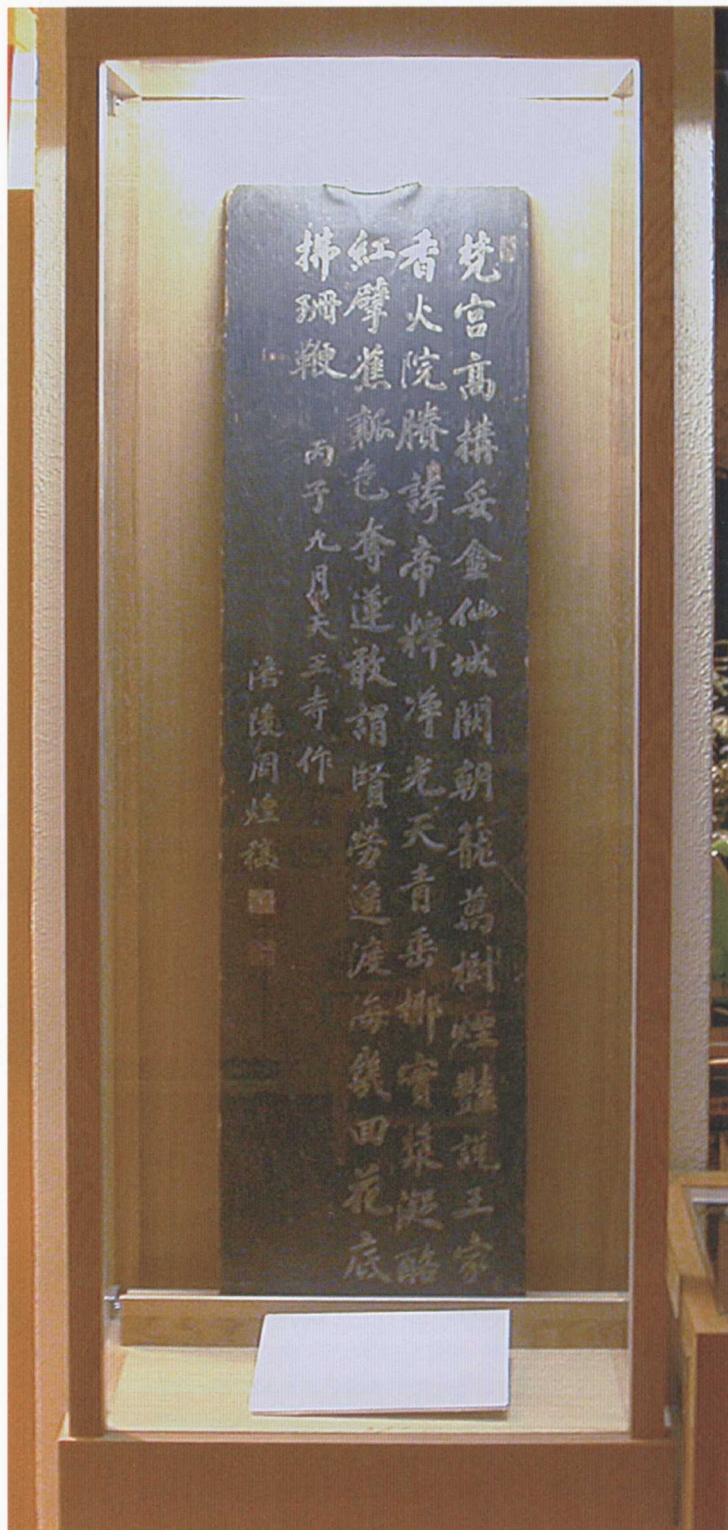 梵宮高構妥金仙城闕朝籠萬樹煙豔說王家
香火院賸誇帝釋淨光天青垂椰實漿凝酪
紅擘蕉瓤色奪蓮敢謂賢勞遥渡海幾回花底
拂珊鞭
丙子九月天王寺作
涪陵周煌稿